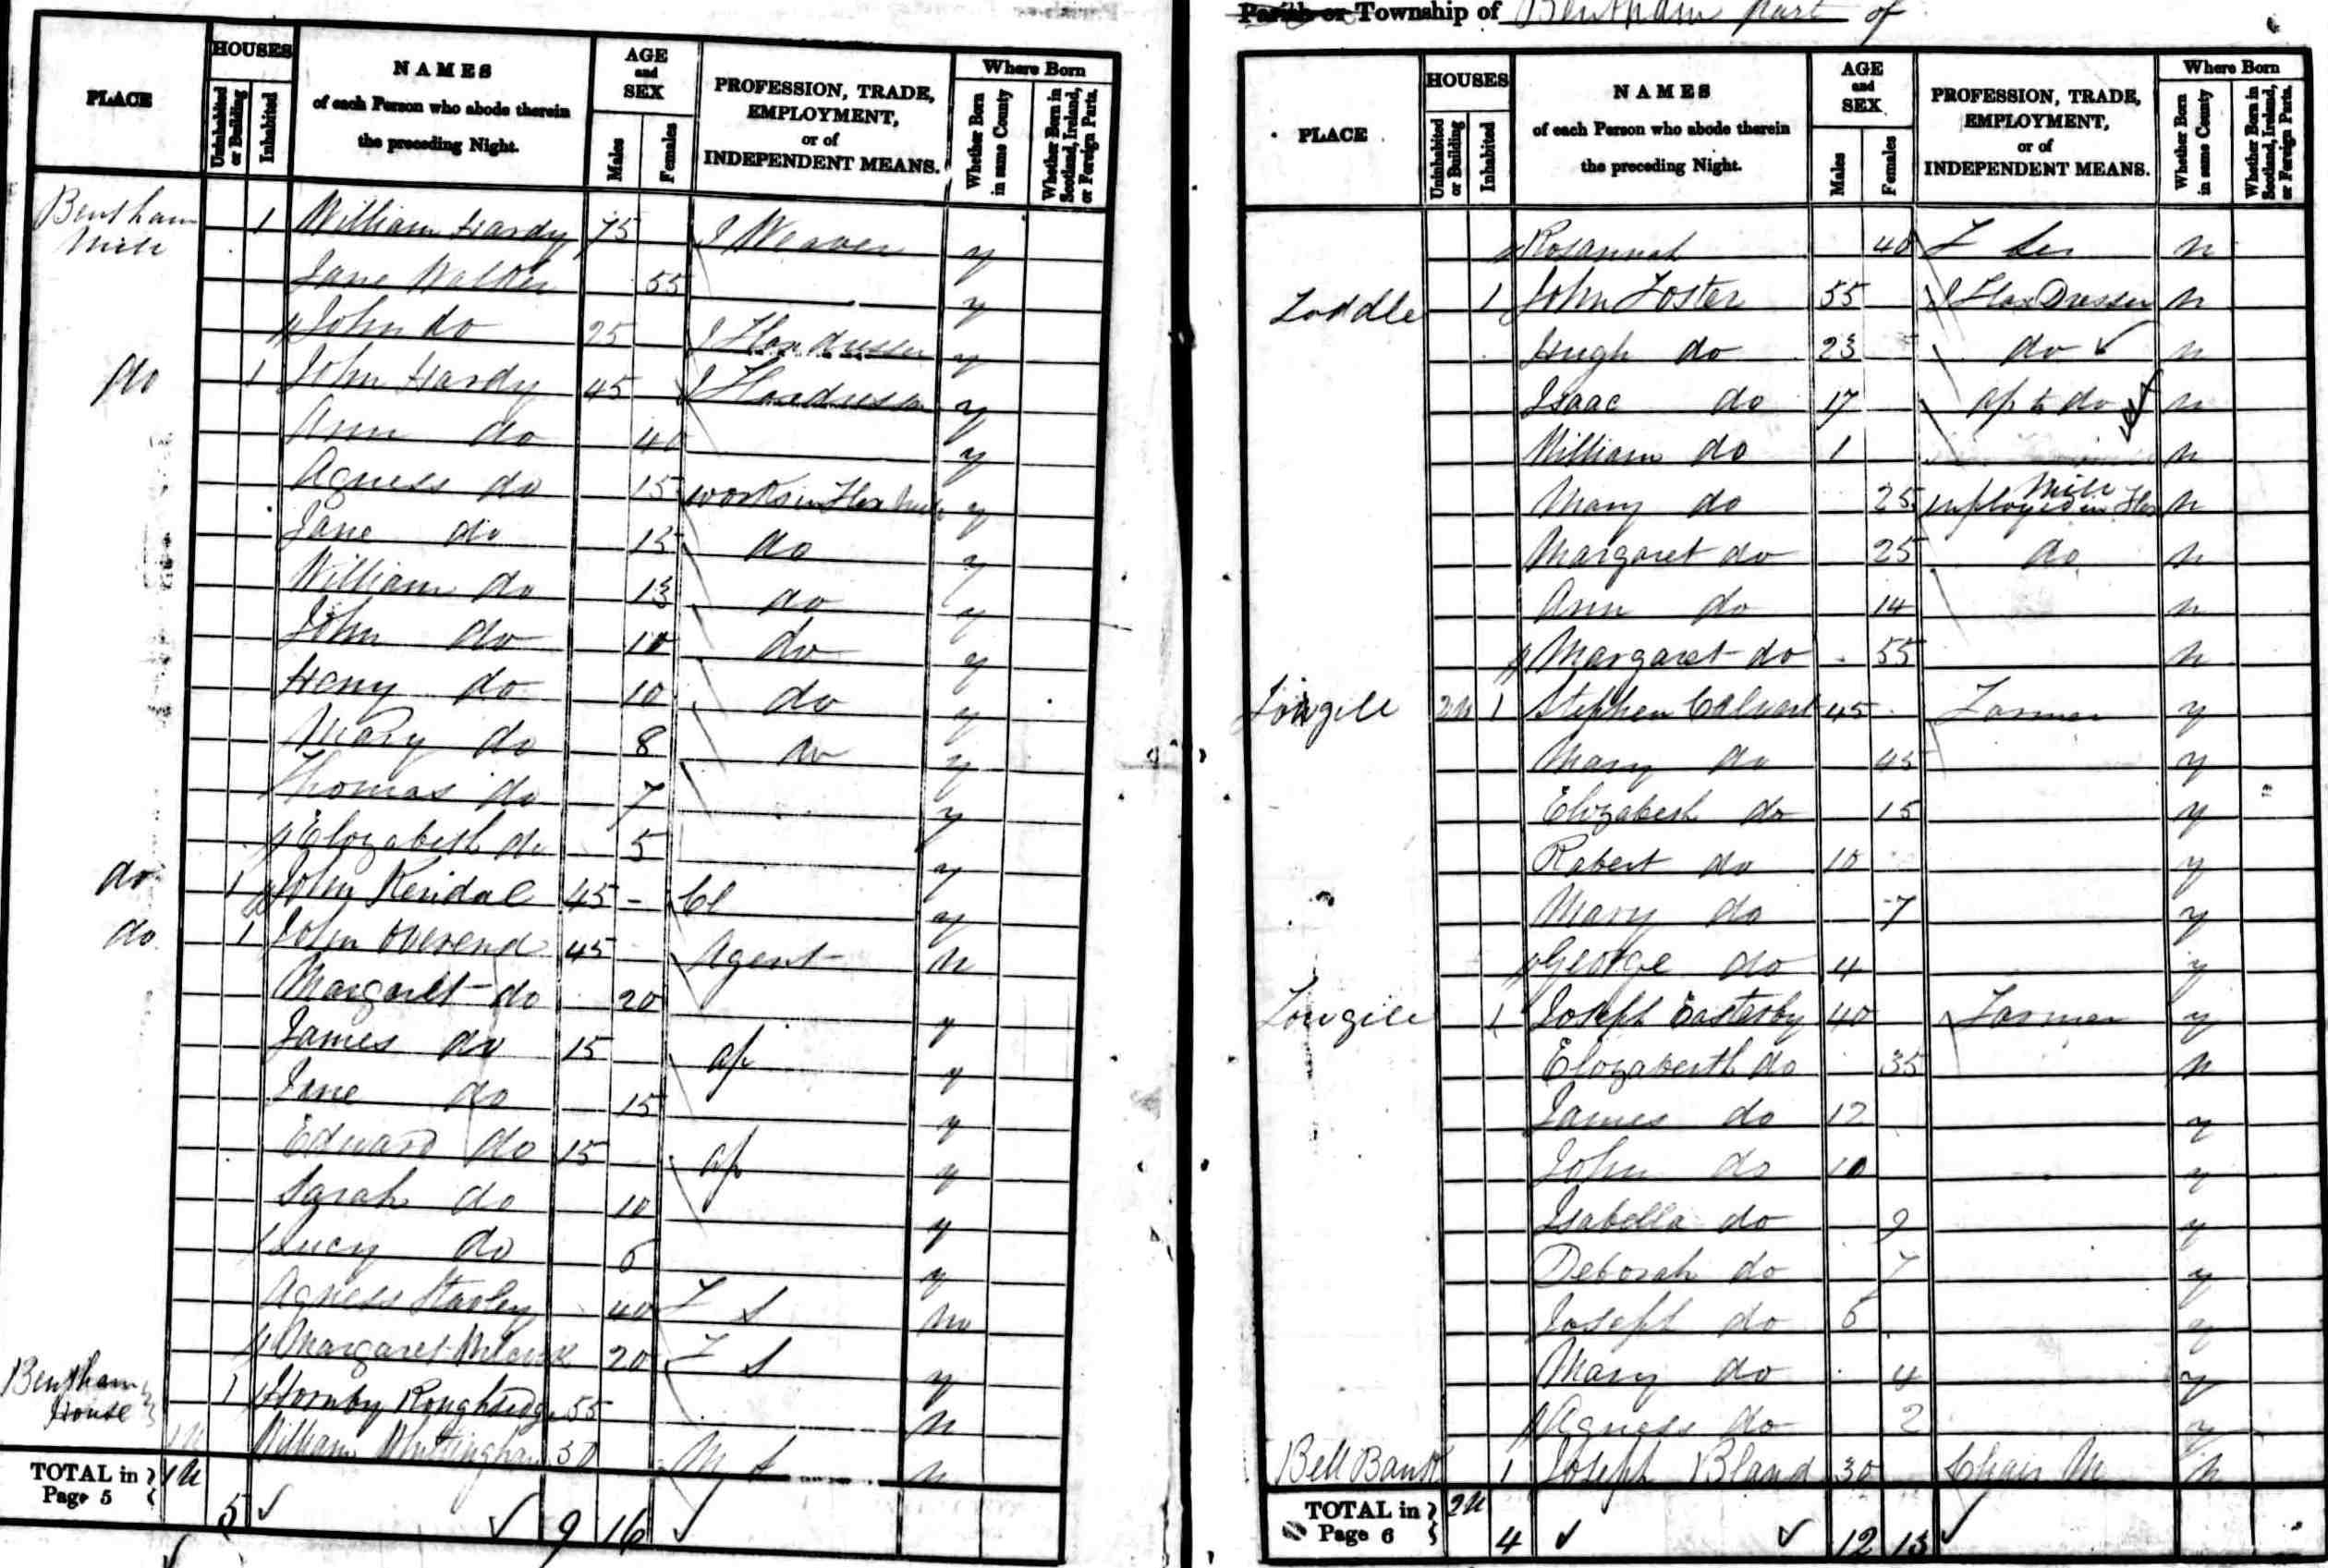 PLACE
HOUSES
Uninhabited or Building
Inhabited
NAMES
of each Person who abode therein
the preceding Night.
AGE
and
SEX
Males
Females
PROFESSION, TRADE,
EMPLOYMENT,
or of
INDEPENDENT MEANS.
Where Born
Whether Born in same County
Whether Born in Scotland, Ireland, or Foreign Parts.
Bentham Mill 1 William Hardy 75 J Weaver y
Jane Walker 55 y
John do 25 J Flaxdresser y
do 1 John Hardy 45 J Flaxdresser y
Ann do 40 y
Agness do 15 works in Flax Mill y
Jane do 15 do y
William do 13 do y
John do 10 do y
Henry do 10 do y
Mary do 8 do y
Thomas do 7 y
Elizabeth do 5 y
do 1 John Kendal 45 Cl y
do 1 John Overend 45 Agent n
Margaret do 20 y
James do 15 ap y
Jane do 15 y
Edward do 15 ap y
Sarah do 10 y
Lucy do 6 y
Agness 40 F S no
Margaret 20 F S y
Bentham House 1 Hornby Roughsedge 55 n
1 U William Whittingham 30 M S n
TOTAL in Page 5 1 U 5 9 16
Parish or Township of Bentham part of
PLACE
HOUSES
Uninhabited or Building
Inhabited
NAMES
of each Person who abode therein
the preceding Night.
AGE
and
SEX
Males
Females
PROFESSION, TRADE,
EMPLOYMENT,
or of
INDEPENDENT MEANS.
Where Born
Whether Born in same County
Whether Born in Scotland, Ireland, or Foreign Parts.
Rosannah 40 F Ser n
Loddle 1 John Foster 55 J Flax Dresser n
Hugh do 23 do n
Isaac do 17 ap to do n
William do 1 n
Mary do 25 employed in Flax Mill n
Margaret do 25 do n
Ann do 14 n
Margaret do 55 n
Lowgill 2U 1 Stephen Calvert 45 Farmer y
Mary do 45 y
Elizabeth do 15 y
Robert do 10 y
Mary do 7 y
George do 4 y
Lowgill 1 Joseph Easterby 40 Farmer y
Elizabeth do 35 n
James do 12 y
John do 10 y
Isabella do 9 y
Deborah do 7 y
Joseph do 6 y
Mary do 4 y
Agness do 2 y
Bell Bank 1 Joseph Bland 30 Chair M n
TOTAL in Page 6 2U 4 12 13